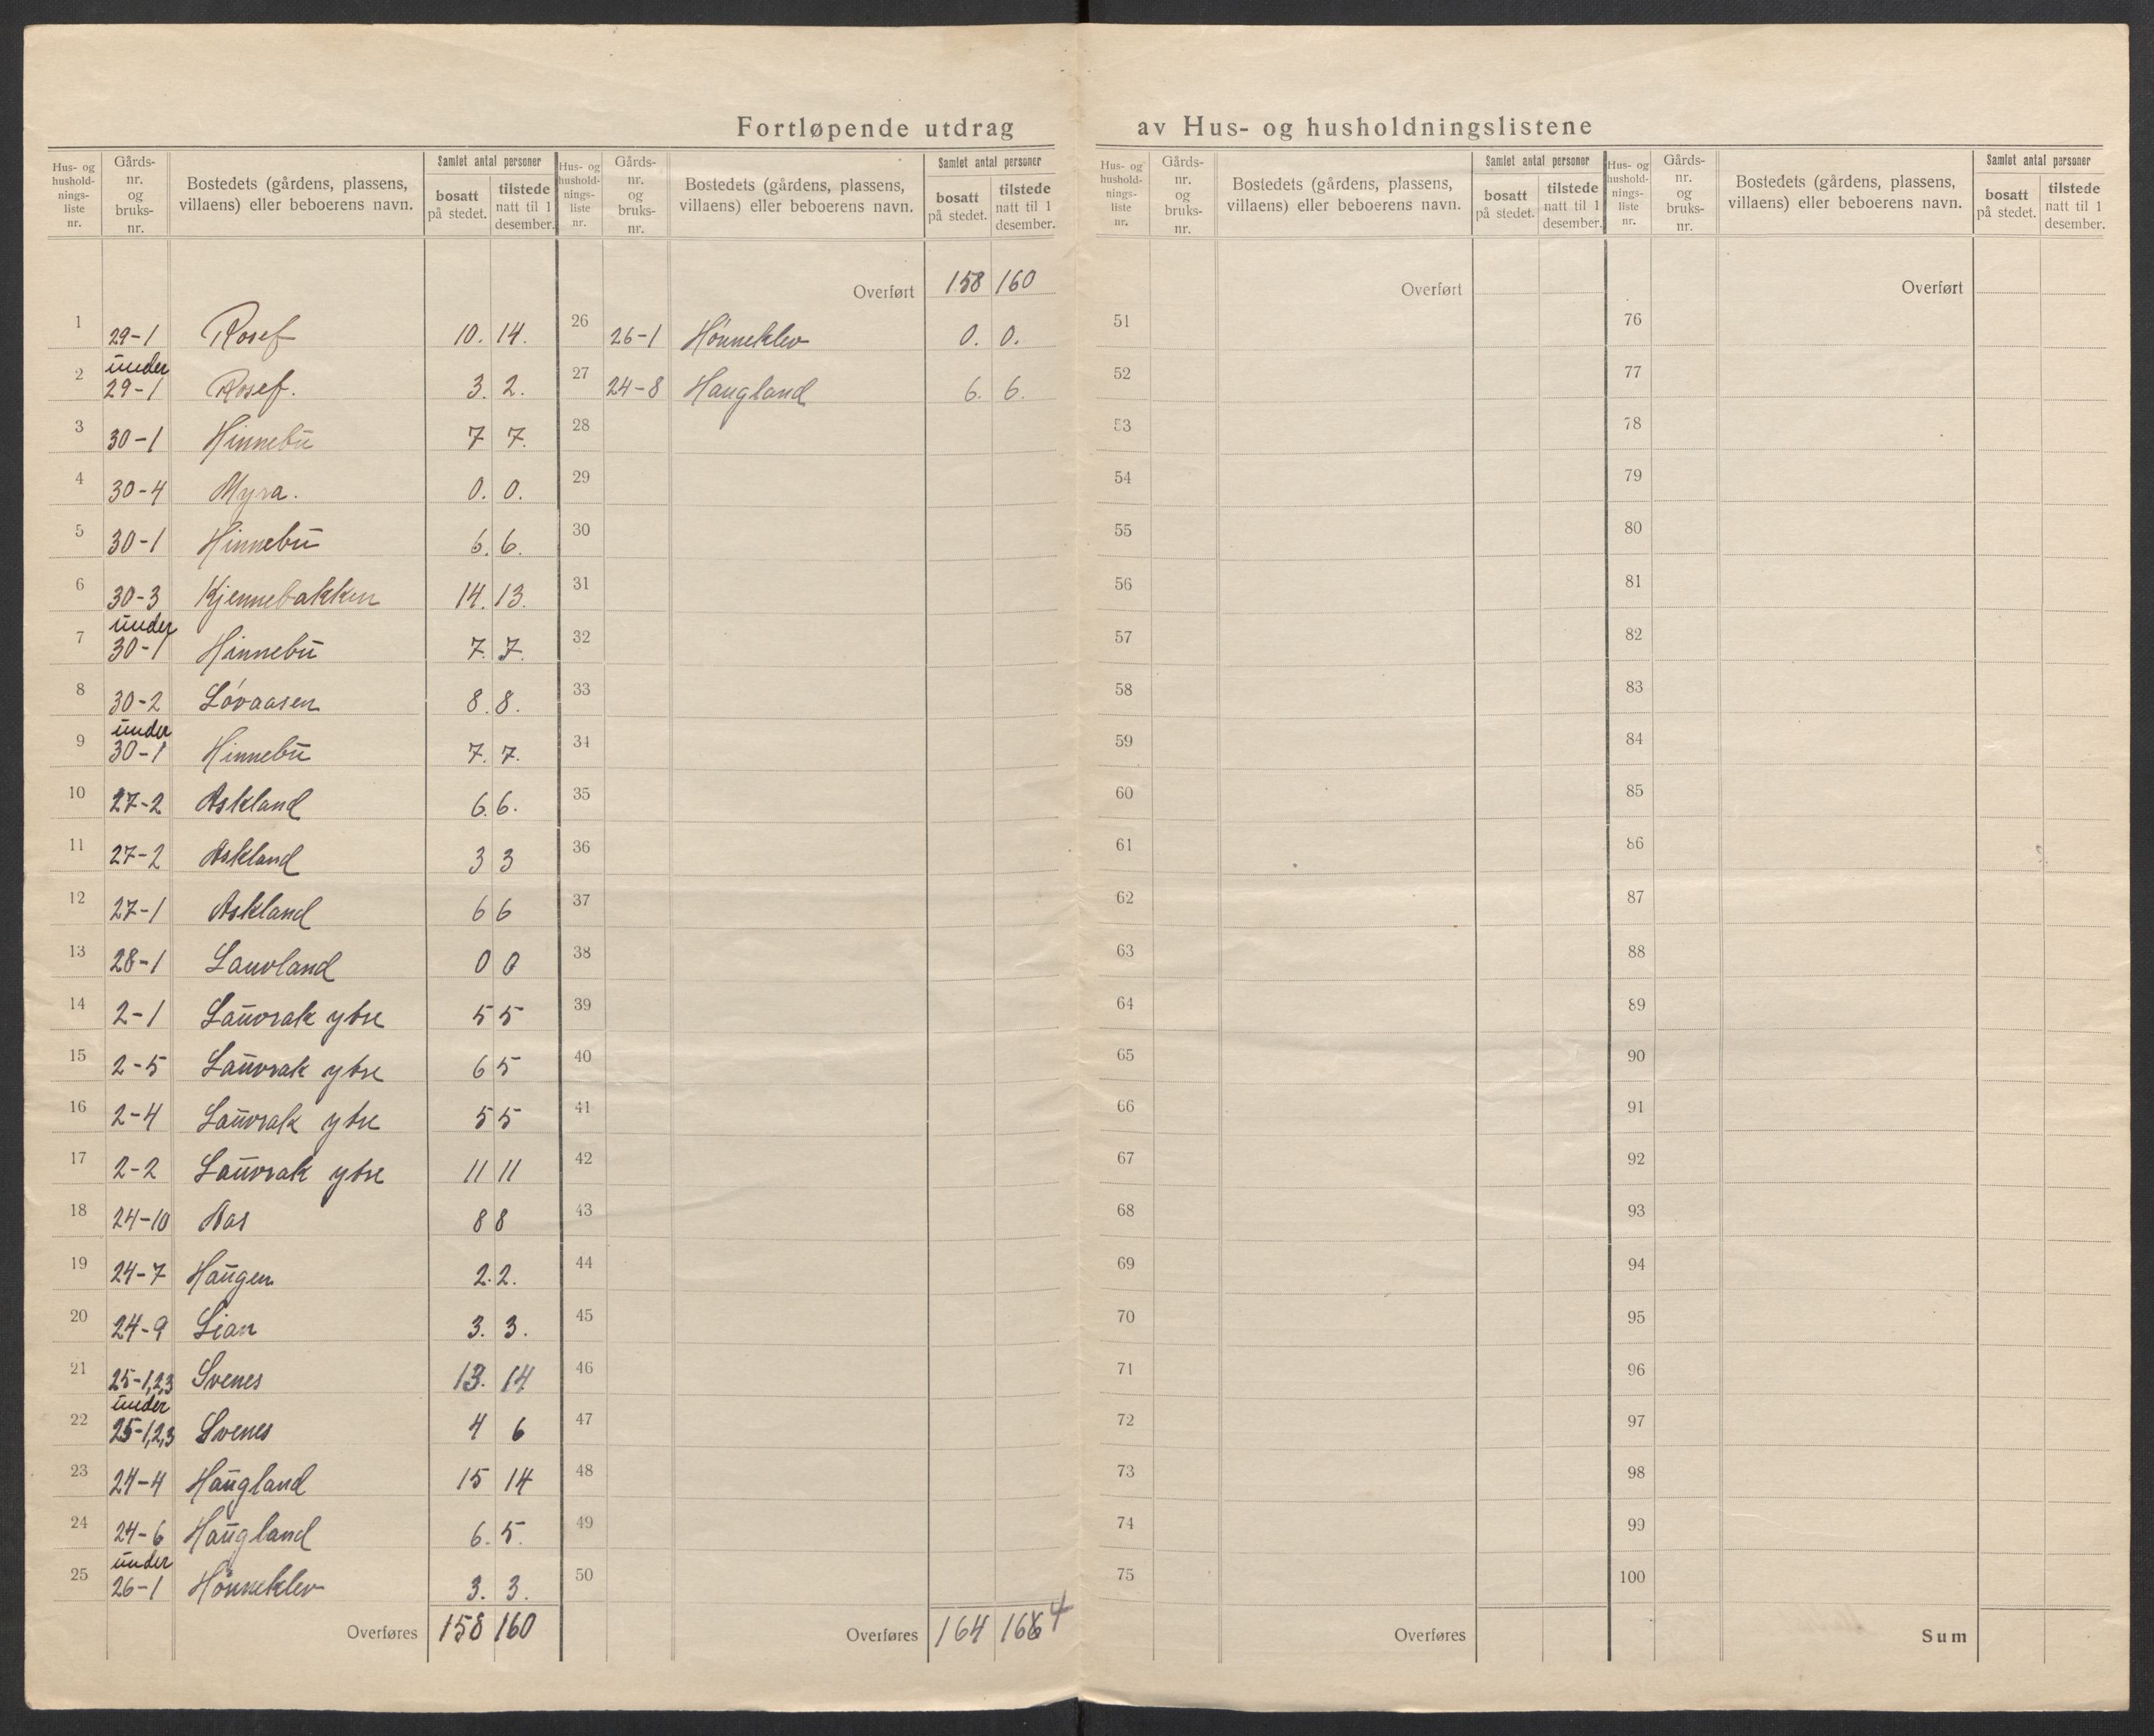 Fortløpende utdrag av Hus- og husholdningslistene
Hus- og hushold-nings-liste nr. | Gårds-nr. og bruks-nr. | Bostedets (gårdens, plassens, villaens) eller beboerens navn. | Samlet antal personer | bosatt på stedet. | tilstede natt til 1 desember.
1 29-1 Rosef 10. 14.
2 under 29-1 Rosef. 3. 2.
3 30-1 Hinnebū 7 7.
4 30-4 Myra. 0. 0.
5 30-1 Hinnebū 6. 6.
6 30-3 Kjennebakken 14. 13.
7 under 30-1 Hinnebū 7. 7.
8 30-2 Løvaasen 8. 8.
9 under 30-1 Hinnebū 7. 7.
10 27-2 Askland 6. 6.
11 27-2 Askland 3 3
12 27-1 Askland 6 6
13 28-1 Lauvland 0 0
14 2-1 Laūvrak ytre 5 5
15 2-5 Laūvrak ytre 6 5
16 2-4 Laūvrak ytre 5 5
17 2-2 Laūvrak ytre 11 11
18 24-10 Aas 8 8
19 24-7 Haūgen 2. 2.
20 24-9 Lian 3. 3.
21 25-1,2,3 Svenes 13. 14
22 under 25-1,2,3 Svenes 4 6
23 24-4 Haūgland 15 14
24 24-6 Haūgland 6. 5.
25 under 26-1 Hønneklev 3. 3.
Overføres 158 160
Hus- og hushold-nings-liste nr. | Gårds-nr. og bruks-nr. | Bostedets (gårdens, plassens, villaens) eller beboerens navn. | Samlet antal personer | bosatt på stedet. | tilstede natt til 1 desember.
Overført 158 160
26 26-1 Hønneklev 0. 0.
27 24-8 Haugland 6. 6.
28
29
30
31
32
33
34
35
36
37
38
39
40
41
42
43
44
45
46
47
48
49
50
Overføres 164 166 4
Hus- og hushold-nings-liste nr. | Gårds-nr. og bruks-nr. | Bostedets (gårdens, plassens, villaens) eller beboerens navn. | Samlet antal personer | bosatt på stedet. | tilstede natt til 1 desember.
Overført
51
52
53
54
55
56
57
58
59
60
61
62
63
64
65
66
67
68
69
70
71
72
73
74
75
Overføres
Hus- og hushold-nings-liste nr. | Gårds-nr. og bruks-nr. | Bostedets (gårdens, plassens, villaens) eller beboerens navn. | Samlet antal personer | bosatt på stedet. | tilstede natt til 1 desember.
Overført
76
77
78
79
80
81
82
83
84
85
86
87
88
89
90
91
92
93
94
95
96
97
98
99
100
Sum